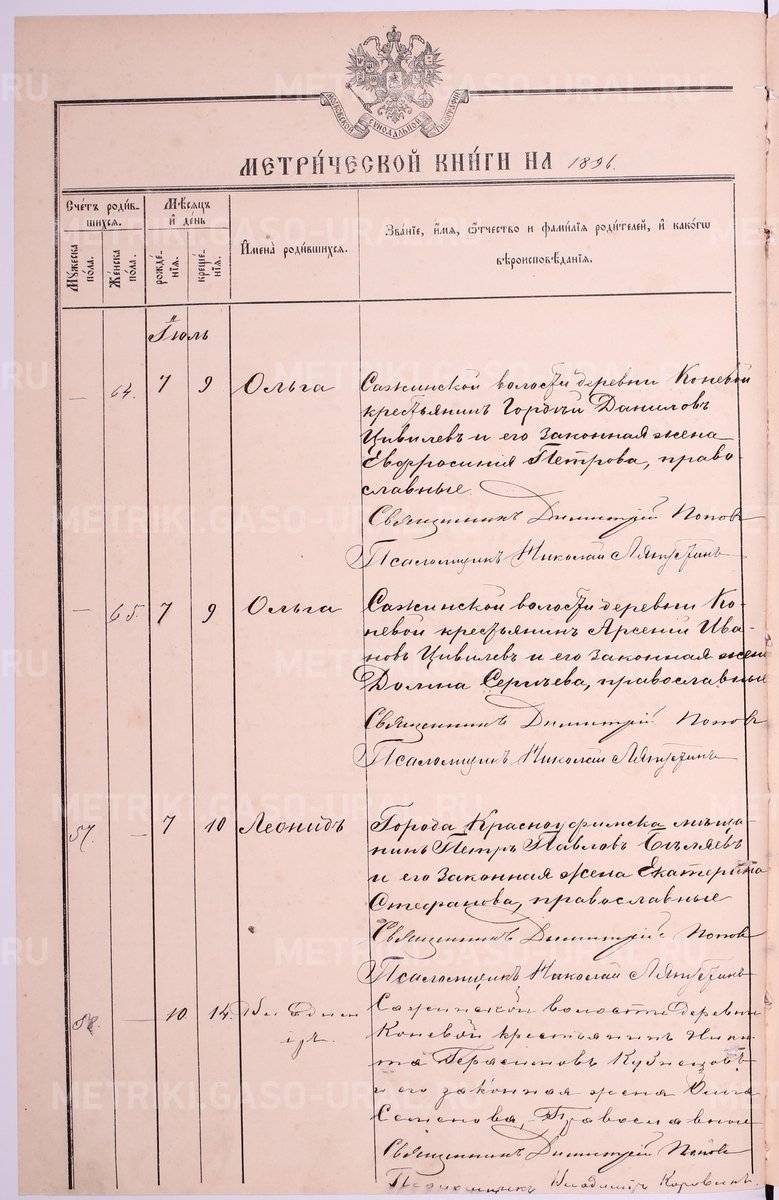 МОСКОВСКОЙ СУНОДАЛЬНОЙ ТУПОГРАФІИ
МЕТРИ́ЧЕСКОЙ КНИ́ГИ НА 1896.
Сче́тъ роди́в-
шихся.
Му́жеска
по́ла.
Же́нска
по́ла.
Мѣ́сяцъ
и҆ де́нь
рожде́-
нїѧ.
креще́-
нїѧ.
И҆мена̀ роди́вшихся.
Зва́нїе, и҆́мѧ, ѻ҆́тчество и фами́лїѧ роди́телей, и҆ како́гѡ
вѣроисповѣ́данїѧ.
Іюль
— 64. 7 9 Ольга Сажинской волости деревни Коневой
крестьянинъ Гордѣй Даниловъ
Цивилевъ и его законная жена
Евфросинія Петрова, право-
славные.
Священникъ Димитрій Поповъ
Псаломщикъ Николай
— 65. 7 9 Ольга Сажинской волости деревни Ко-
невой крестьянинъ Арсеній Ива-
новъ Цивилевъ и его законная жена
Домна Сергѣева, православные
Священникъ Димитрій Поповъ
Псаломщикъ Николай
57. — 7 10 Леонидъ Города Красноуфимска мѣща-
нинъ Петръ Павловъ Бѣляевъ
и его законная жена Екатерина
Стефанова, православные
Священникъ Димитрій Поповъ
Псаломщикъ Николай
58. — 10 14. Сажинской волости деревни
Коневой крестьянинъ Ники-
та Герасимовъ Кузнецовъ
и его законная жена Ольга
Семенова, Православные
Священникъ Димитрій Поповъ
Псаломщикъ Владиміръ Коровинъ.
METRIKI.GASO-URAL.RU